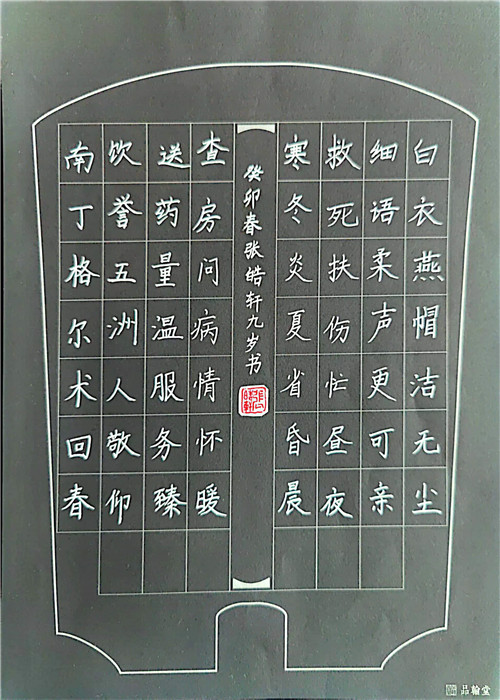 白衣燕帽洁无尘
细语柔声更可亲
救死扶伤忙昼夜
寒冬炎夏省昏晨
癸卯春张皓轩九岁书
查房问病情怀暖
送药量温服务臻
饮誉五洲人敬仰
南丁格尔术回春
品翰堂